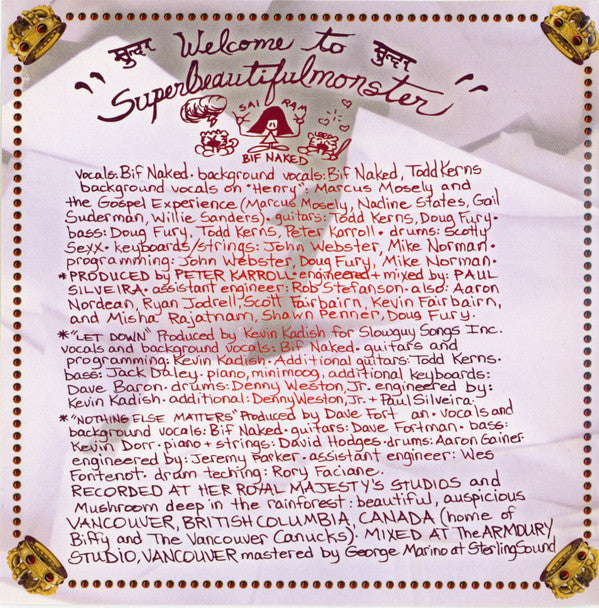 सुन्दर Welcome to सुन्दर
"Superbeautifulmonster"
SAI RAM
BIF NAKED
vocals: Bif Naked • background vocals: Bif Naked, Todd Kerns
background vocals on "Henry": Marcus Mosely and
the Gospel Experience (Marcus Mosely, Nadine States, Gail
Suderman, Willie Sanders) • guitars: Todd Kerns, Doug Fury •
bass: Doug Fury, Todd Kerns, Peter Karroll • drums: Scotty
Sexx • keyboards/strings: John Webster, Mike Norman •
programming: John Webster, Doug Fury, Mike Norman •
*PRODUCED by PETER KARROLL • engineered + mixed by: PAUL
SILVEIRA • assistant engineer: Rob Stefanson • also: Aaron
Nordean, Ryan Jodrell, Scott Fairbairn, Kevin Fairbairn,
and Misha Rajatnam, Shawn Penner, Doug Fury.
*"LET DOWN" Produced by Kevin Kadish for Slowguy Songs Inc.
vocals and background vocals: Bif Naked • guitars and
programming: Kevin Kadish • Additional guitars: Todd Kerns •
bass: Jack Daley • piano, minimoog, additional keyboards:
Dave Baron • drums: Denny Weston, Jr • engineered by:
Kevin Kadish • additional: Denny Weston, Jr. + Paul Silveira.
*"NOTHING ELSE MATTERS" Produced by Dave Fort an • vocals and
background vocals: Bif Naked • guitars: Dave Fortman • bass:
Kevin Dorr • piano + strings: David Hodges • drums: Aaron Gainer
engineered by: Jeremy Parker • assistant engineer: Wes
Fontenot • drum teching: Rory Faciane.
RECORDED AT HER ROYAL MAJESTY'S STUDIOS and
Mushroom deep in the rainforest: beautiful, auspicious
VANCOUVER, BRITISH COLUMBIA, CANADA (home of
Biffy and The Vancouver Canucks) • MIXED AT The ARMOURY
STUDIO, VANCOUVER mastered by George Marino at Sterling Sound